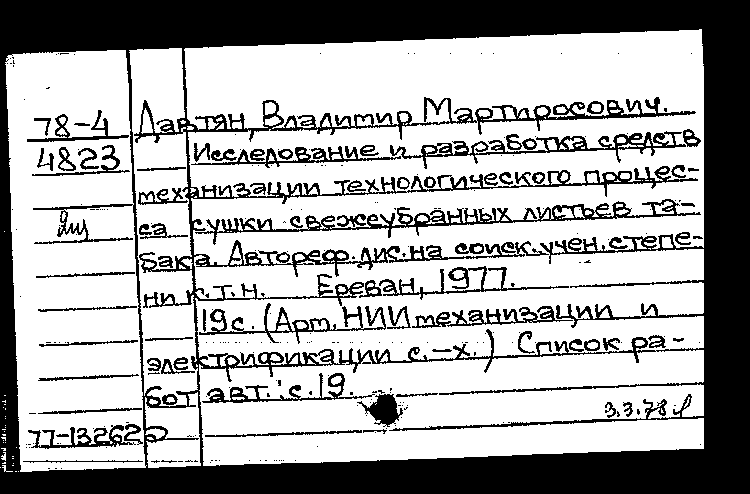 78-4 Давтян, Владимир Мартиросович.
4823 Исследование и разработка средств
механизации технологического процес-
са сушки свежеубранных листьев та-
бака. Автореф. дис. на соиск. учен. степе-
ни к.т.н. Ереван, 1977.
19 с. (Арт. НИИ механизации и
электрификации с.-х.) Список ра-
бот авт.: с. 19.
3.3.78
77-13262